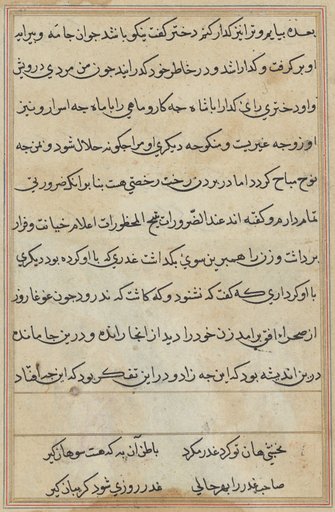 بعده بیایم و ترا نیز کدار کنم دختر کفت نیکو باشد جوان جامه و پیرایه
او بر کرفت و کدارا شد و در خاطر خود کذرانید چون من مردی درویش
و او دختری رای کدا را با شاه چه کار و ماهی را با ماه چه اسرار و نیز
او زوجه غیریت و منکوحه دیکری او مرا چکونه حلال شود و چه
نوح مباح کردد اما در بردن رخت رخصتی هست بنا برانکه ضرورتی
تمام دارم و کفته اند عند الضرورات تبیح المحظورات اعلام خیانت و فرار
برداشت و زن را همبرین سوی بکذاشت غدری که با او کرده بود دیکری
با او کرد اری که کفت که نشنود و که کاشت که ندرود چون غوغا روز
از صحراء افق برامد زن خود را دید از انجا رانده و درین جا مانده
درین اندیشه بود که این چه زاد و در این تفکر بود که این چه افتاد
نخشبی هان تو کرد غدر مکرد باطن آن به که هست سوهان کیر
صاحب غدر را بهر حالی غدر روزی شود کریبان کیر